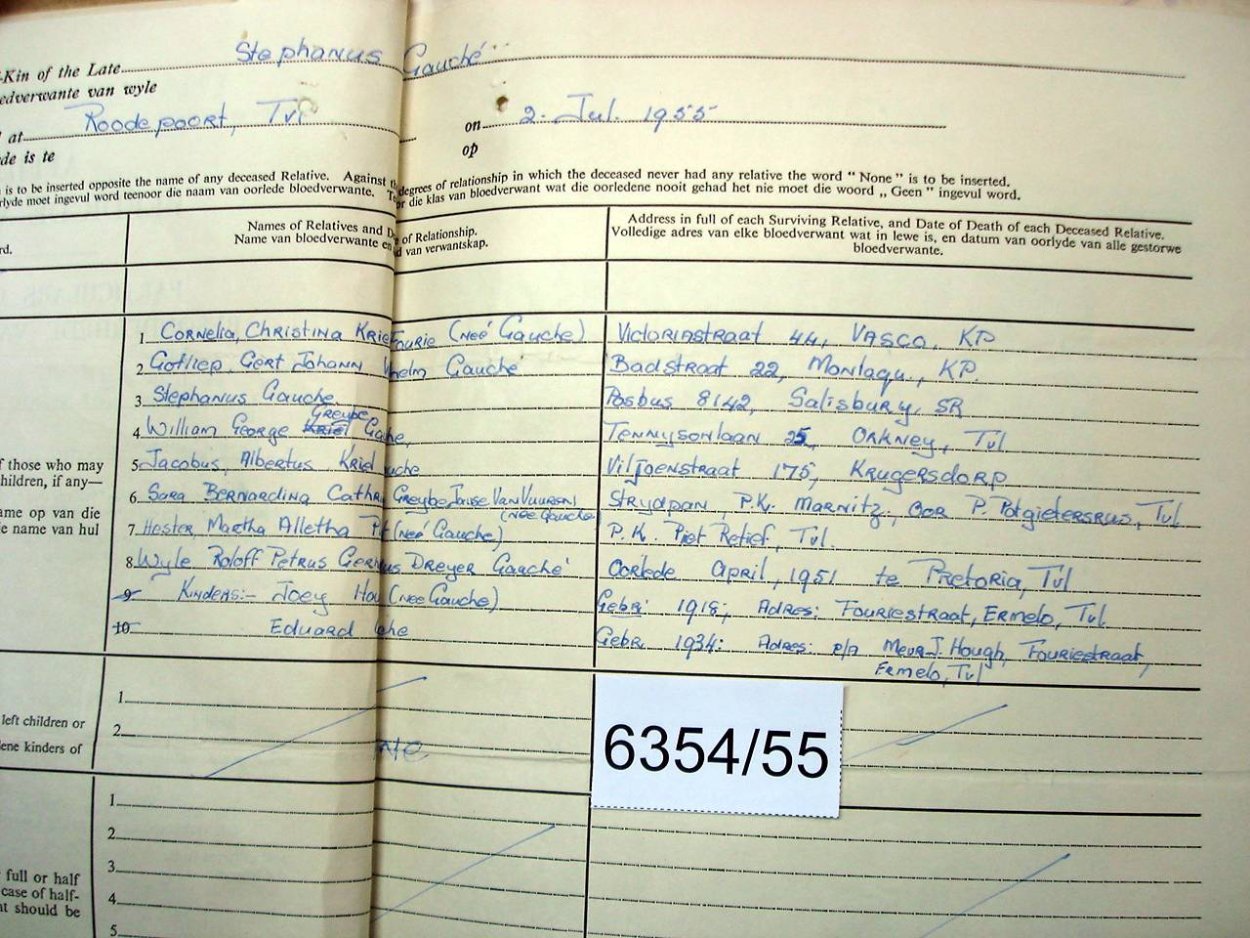 -Kin of the Late Stephanus Gauché
edverwante van wyle
at Roodepoort, Tvl on 2. Jul. 1955
de is te op
is to be inserted opposite the name of any deceased Relative. Against degrees of relationship in which the deceased never had any relative the word "None" is to be inserted.
rlyde moet ingevul word teenoor die naam van oorlede bloedverwante. die klas van bloedverwant wat die oorledene nooit gehad het nie moet die woord „Geen" ingevul word.
rd. Names of Relatives and of Relationship. Address in full of each Surviving Relative, and Date of Death of each Deceased Relative.
Name van bloedverwante en van verwantskap. Volledige adres van elke bloedverwant wat in lewe is, en datum van oorlyde van alle gestorwe
bloedverwante.
1 Cornelia, Christina Krie Fourie (neé Gauche) Victoriastraat 44, VASCO, KP
2 Gotliep Gert Johann helm Gauche Badstraat 22, Montagu, KP.
3 Stephanus Gauche Posbus 8142, Salisbury, SR
Greybe
4 William George Kriel Gauche, Tennysonlaan 25, Orkney, Tvl
5 Jacobus, Albertus Kriel uche Viljoenstraat 175, Krugersdorp
6 Sara Bernardina Cathr Greybe Janse Van Vuuren Strydpan, P.K. Marnitz, oor P. Potgietersrus, Tvl
(neé Gauche
7 Hester Martha Alletha (neé Gauche) P.K. Piet Retief, Tvl.
8 Wyle Roloff Petrus Ger us Dreyer Gauché Oorlede April, 1951 te Pretoria, Tvl
9 Kinders:- Joey Hou (neé Gauche) Gebr: 1918; Adres: Fouriestraat, Ermelo, Tvl.
10 Eduard che Gebr. 1934: Adres: p/a Mevr J. Hough, Fouriestraat,
Ermelo, Tvl
f those who may
hildren, if any—
ame op van die
ie name van hul
1
left children or
2
ene kinders of
6354/55
1
2
3
full or half
4
case of half-
at should be
5